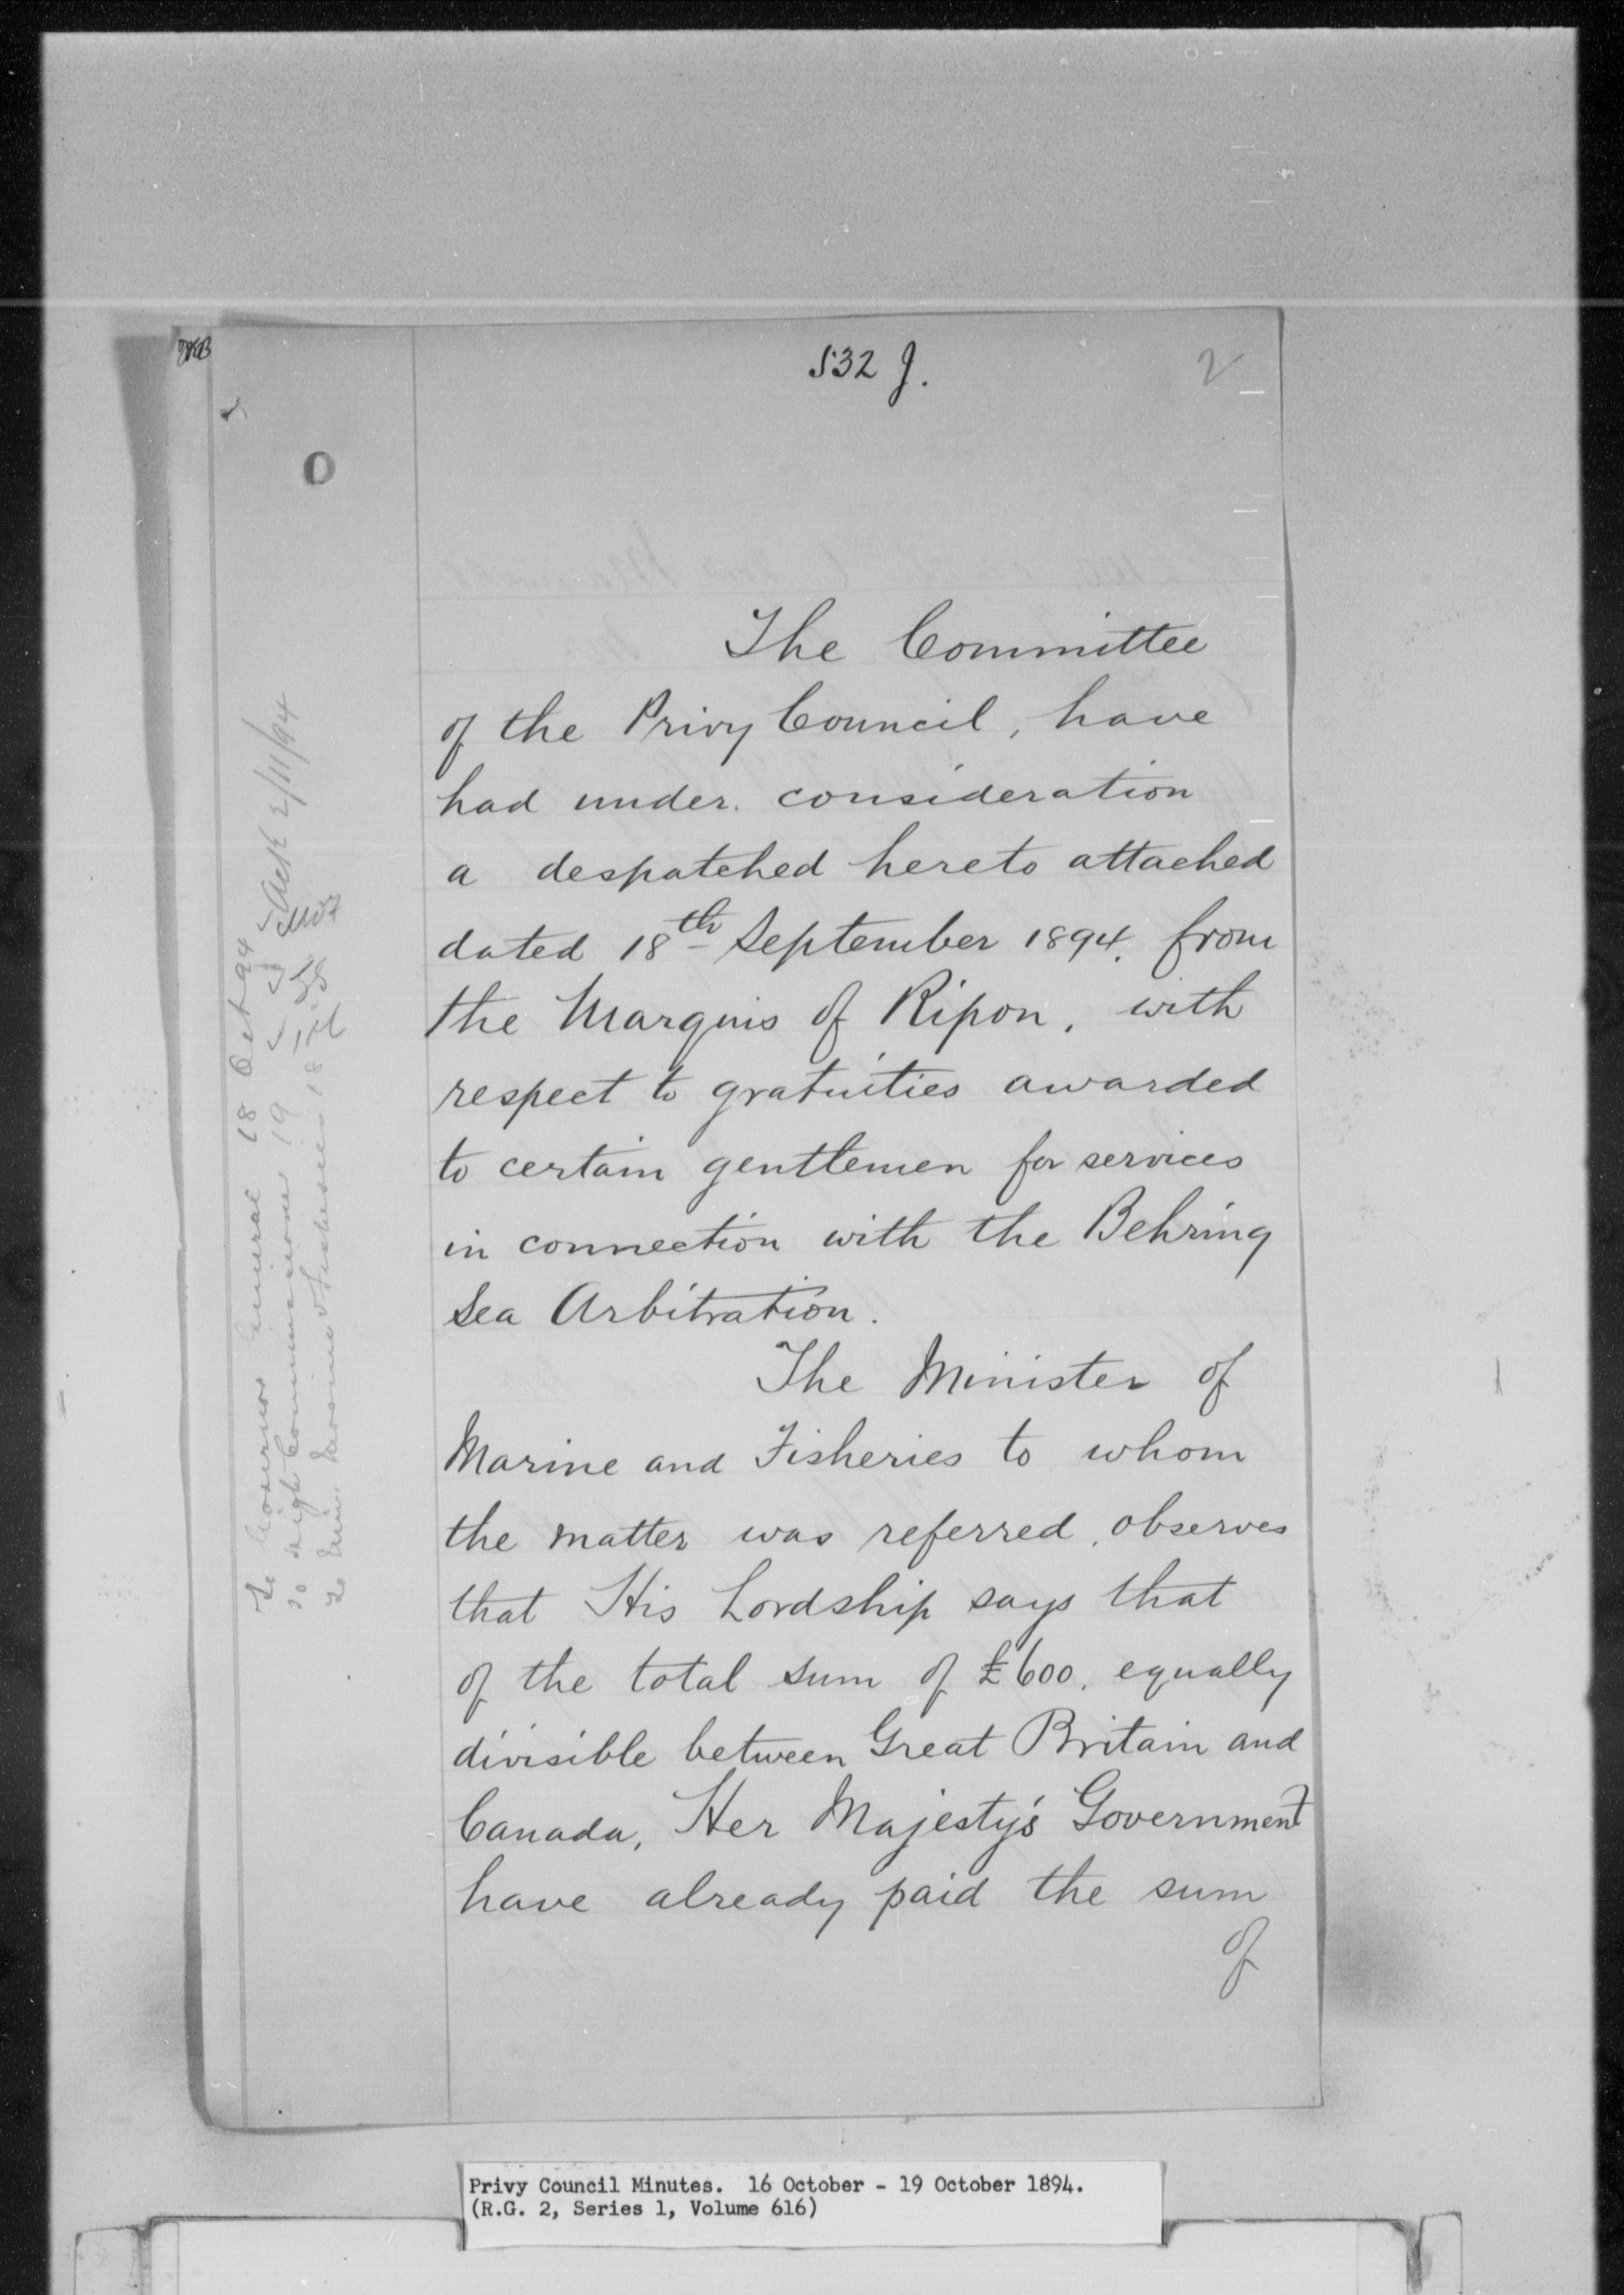 532 J.
2
O
The Committee
of the Privy Council, have
had under consideration
a despatched hereto attached
dated 18th September 1894, from
the Marquis of Ripon, with
respect to gratuities awarded
to certain gentlemen for services
in connection with the Behring
Sea Arbitration.
The Minister of
Marine and Fisheries to whom
the matter was referred, observes
that His Lordship says that
of the total sum of £600, equally
divisible between Great Britain and
Canada, Her Majesty's Government
have already paid the sum
of
To Governor General 18 Oct 94
To High Commissioner 19
To Min. Marine & Fisheries 18
2/11/94
Privy Council Minutes. 16 October - 19 October 1894.
(R.G. 2, Series 1, Volume 616)